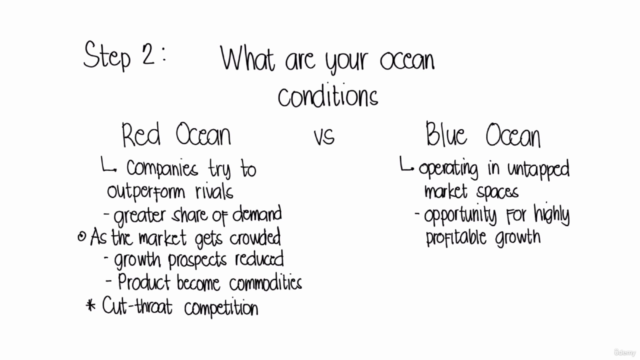 Step 2: What are your ocean
conditions
Red Ocean vs Blue Ocean
↳ Companies try to
outperform rivals
- greater share of demand
⊙ As the market gets crowded
- growth prospects reduced
- Product become commodities
* Cut-throat competition
↳ operating in untapped
market spaces
- opportunity for highly
profitable growth
Udemy